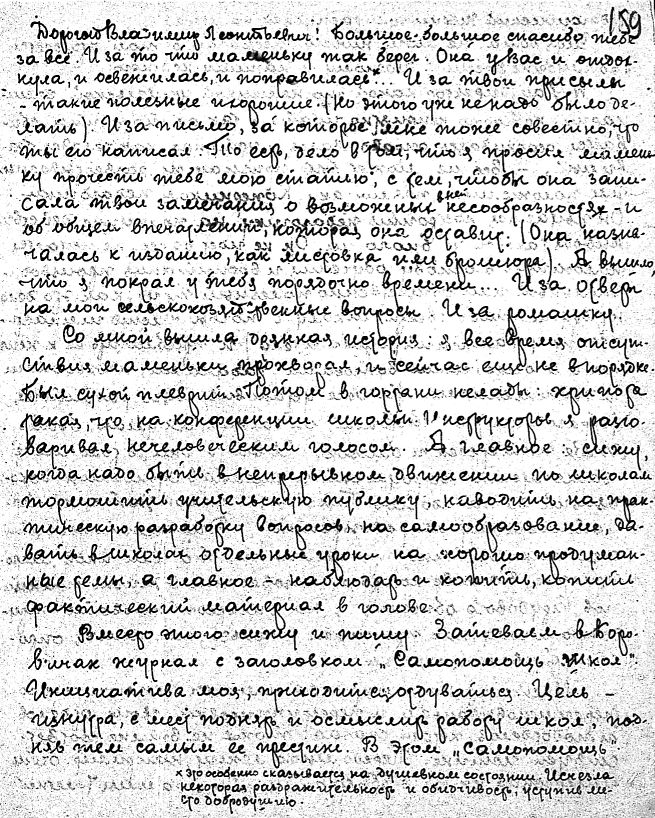 159
Дорогой Владимир Леонтьевич! Большое-большое спасибо тебе
за все. И за то что маменьку так берег. Она у вас и отдох-
нула, и освежилась, и поправилась×. И за твои присылы
- такие полезные и хорошие. (Но этого уже не надо было де-
лать). И за письмо, за которое мне тоже совестно, что
ты его написал. То есть, дело в том, что я просил мамень-
ку прочесть тебе мою статью, с тем, чтобы она запи-
сала твои замечания о возможных в ней несообразностях - и
об общем впечатлении, которая она оставит. (Она назна-
чалась к изданию, как листовка или брошюра). А вышло,
что я покрал у тебя порядочно времени... И за ответ
на мои сельскохозяйственные вопросы. И за ромашку.
Со мной вышла дрянная история: я все время отсут-
ствия маменьки прохворал, и сейчас еще не в порядке.
Был сухой плеврит. Потом в гортани нелады: хрипота
такая, что на конференции школы инструкторов я разго-
варивал нечеловеческим голосом. А главное: сижу,
когда надо быть в непрерывном движении по школам
тормошить учительскую публику, наводить на прак-
тическую разработку вопросов, на самообразование, да-
вать в школах отдельные уроки на хорошо продуман-
ные темы, а главное - наблюдать и копить, копить
фактический материал в голове.
Вместо этого сижу и пишу. Затеваем в Боро-
вичах журнал с заголовком „Самопомощь школ".
Инициатива моя, приходится отдуваться. Цель -
изнутра, с мест поднять и осмыслить работу школ, под-
нять тем самым ее престиж. В этом „Самопомощь
× это особенно сказывается на душевном состоянии. Исчезла
некоторая раздражительность и обидчивость, уступив ме-
сто добродушию.